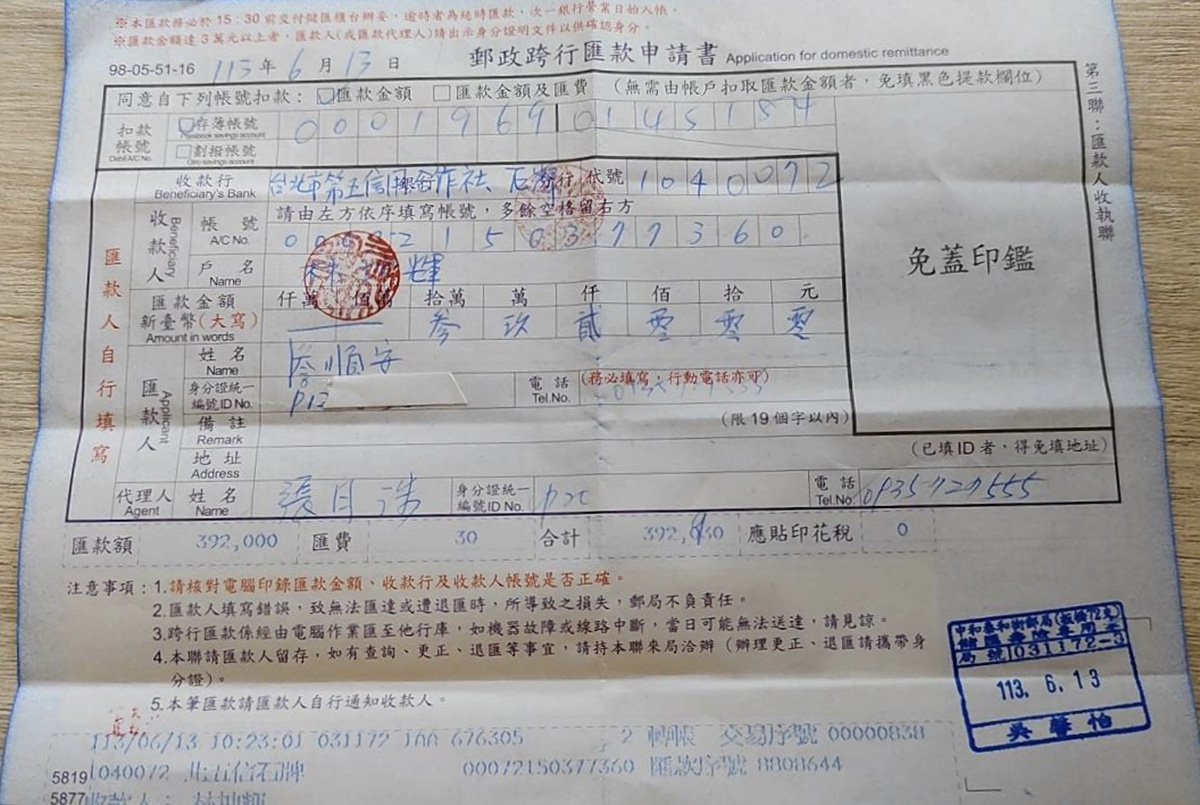 ※本匯款務必於15:30前交付儲匯櫃台辦妥，逾時者為逾時匯款，次一銀行營業日始入帳。
※匯款金額達3萬元以上者，匯款人(或匯款代理人)請出示身分證明文件以供確認身分。
98-05-51-16 113年6月13日 郵政跨行匯款申請書 Application for domestic remittance
第三聯：匯款人收執聯
同意自下列帳號扣款： 匯款金額 匯款金額及匯費 (無需由帳戶扣取匯款金額者，免填黑色提款欄位)
扣款帳號 Debt A/C No. 存簿帳號 Passbook savings account 0001969 0145184
劃撥帳號 Giro savings account
匯款人自行填寫
收款行 Beneficiary's Bank 台北市第五信用合作社 石牌分行 代號 1040072
收款人 Beneficiary
帳號 A/C No. 請由左方依序填寫帳號，多餘空格留右方
00072150377360
戶名 Name 輝
免蓋印鑑
匯款金額 新臺幣(大寫) Amount in words 仟萬 佰萬 拾萬 萬 仟 佰 拾 元
參 玖 貳 零 零 零
匯款人 Applicant
姓名 Name 順安
身分證統一編號 ID No. P12 電話 Tel.No. (務必填寫；行動電話亦可)
備註 Remark (限19個字以內)
地址 Address (已填ID者，得免填地址)
代理人 Agent 姓名 Name 張月 身分證統一編號 ID No. P22 電話 Tel.No. 0935727555
匯款額 392,000 匯費 30 合計 392,030 應貼印花稅 0
注意事項：1.請核對電腦印錄匯款金額、收款行及收款人帳號是否正確。
2.匯款人填寫錯誤，致無法匯達或遭退匯時，所導致之損失，郵局不負責任。
3.跨行匯款係經由電腦作業匯至他行庫，如機器故障或線路中斷，當日可能無法送達，請見諒。
4.本聯請匯款人留存，如有查詢、更正、退匯等事宜，請持本聯來局洽辦（辦理更正、退匯請攜帶身
分證）。
5.本筆匯款請匯款人自行通知收款人。
中和泰和街郵局(板橋72支)
儲匯壽險專用章
局號 031172-3
113. 6. 13
吳馨怡
113/06/13 10:23:01 031172 1AA 676305 2 轉帳 交易序號 00000838
5819 1040072 北五信石牌 00072150377360 匯款序號 8808644
5877 收款人：林坤輝